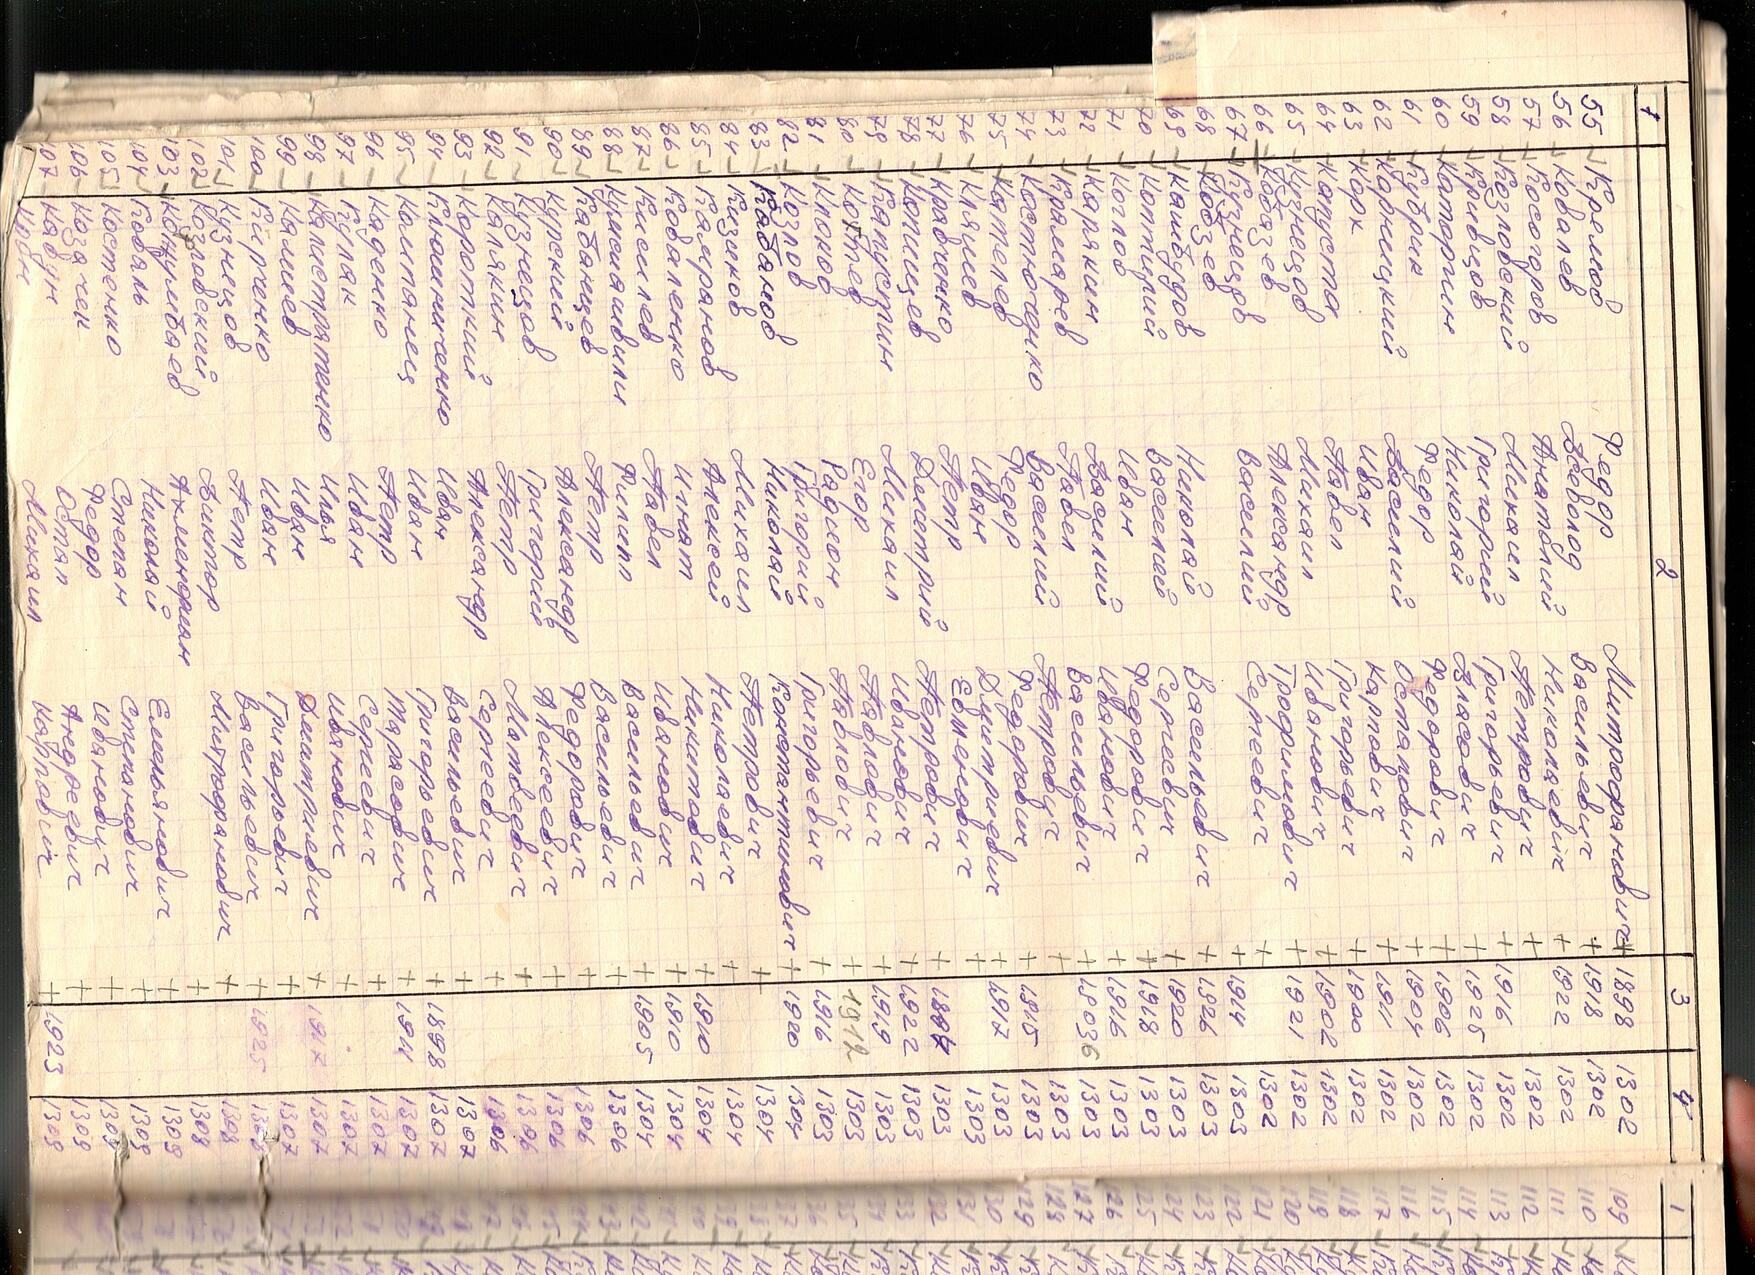 1 2 3 4
55 Кремов Федор Митрофанович + 1898 1302
56 Ковалев Всеволод Васильевич + 1918 1302
57 Косогоров Анатолий Николаевич + 1922 1302
58 Козловский Михаил Петрович + 1302
59 Кривцов Григорий Григорьевич + 1916 1302
60 Каторгин Николай Власович + 1925 1302
61 Кубрик Федор Федорович + 1906 1302
62 Корнецкий Василий Остапович + 1904 1302
63 Корж Иван Карпович + 1911 1302
64 Капуста Павел Григорьевич + 1900 1302
65 Кузнецов Михаил Иванович + 1902 1302
66 Кобазев Александр Трофимович + 1921 1302
67 Кузнецов Василий Сергеевич + 1302
68 + 1914 1303
69 Камбуров Николай Васильевич + 1926 1303
70 Василий Сергеевич + 1920 1303
71 Козлов Иван Федорович + 1918 1303
72 Карякин Василий Иванович + 1916 1303
73 Крамарев Павел Васильевич + 1303
74 Костюченко Василий Петрович + 1303
75 Каптелев Федор Федорович + 1915 1303
76 Кляшев Иван Дмитриевич + 1917 1303
77 Кравченко Петр Евменович + 1303
78 Копищев Дмитрий Петрович + 1894 1303
79 Капустин Михаил Иванович + 1922 1303
80 Коптев Егор Павлович + 1919 1303
81 Клюков Родион Павлович + 1912 1303
82 Козлов Григорий Григорьевич + 1916 1303
83 Кабанов Николай Константинович + 1920 1304
84 Кизиков Михаил Петрович + 1304
85 Алексей Николаевич + 1304
86 Коваленко Игнат Никитович + 1910 1304
87 Киселев Павел Иванович + 1910 1304
88 Кумсиашвили Филипп Васильевич + 1905 1304
89 Кабанцев Петр Васильевич + 1306
90 Курский Александр Федорович + 1306
91 Кузнецов Григорий Алексеевич + 1306
92 Калякин Петр Матвеевич + 1306
93 Короткий Александр Сергеевич + 1306
94 Клюшниченко Иван Васильевич + 1307
95 Колтанец Иван Григорьевич + 1898 1307
96 Каденко Петр Тарасович + 1911 1307
97 Куляк Иван Сергеевич + 1307
98 Калистратенко Илья Иванович + 1307
99 Калиев Иван Дмитриевич + 1917 1307
100 Кириченко Иван Григорьевич + 1307
101 Кузнецов Петр Васильевич + 1925 1308
102 Козловский Виктор Митрофанович + 1308
103 + 1308
104 Коваль Николай Емельянович + 1309
105 Костенко Степан Степанович + 1309
106 Козачек Федор Иванович + 1309
107 Кавун Остап Андреевич + 1309
Михаил Карпович + 1923 1309
1
109
110
111
112
113
114
115
116
117
118
119
120
121
122
123
124
125
126
127
128
129
130
131
132
133
134
135
136
137